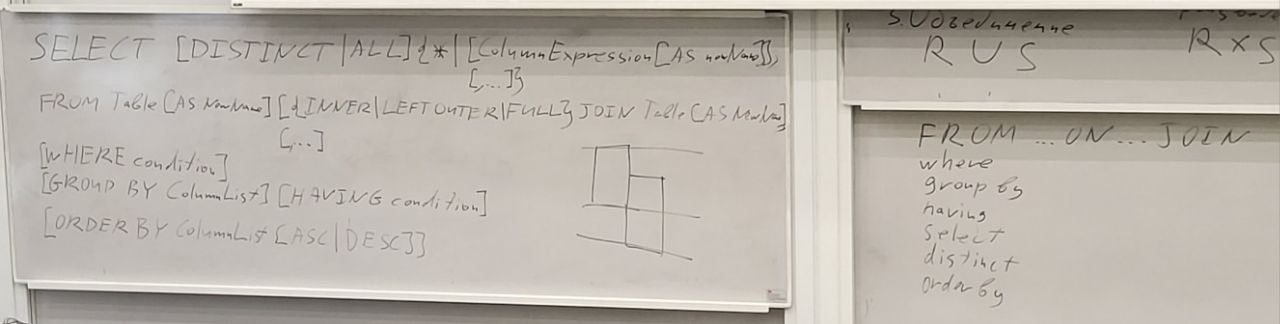 SELECT [DISTINCT|ALL]{*|[ColumnExpression[AS newName]],
[,...]}
FROM Table[AS NewName][{INNER|LEFT OUTER|FULL} JOIN Table[AS NewNam]
[,...]
[WHERE condition]
[GROUP BY ColumnList] [HAVING condition]
[ORDER BY ColumnList [ASC|DESC]]
5. Объединение
R U S
R x S
FROM ... ON ... JOIN
where
group by
having
select
distinct
order by